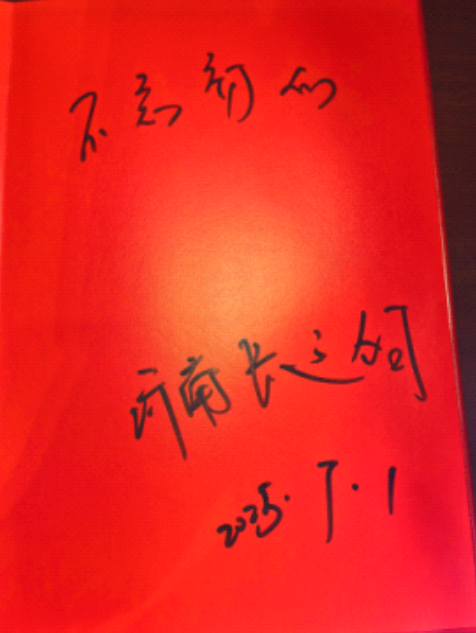 不忘初心
河南长
2025.7.1